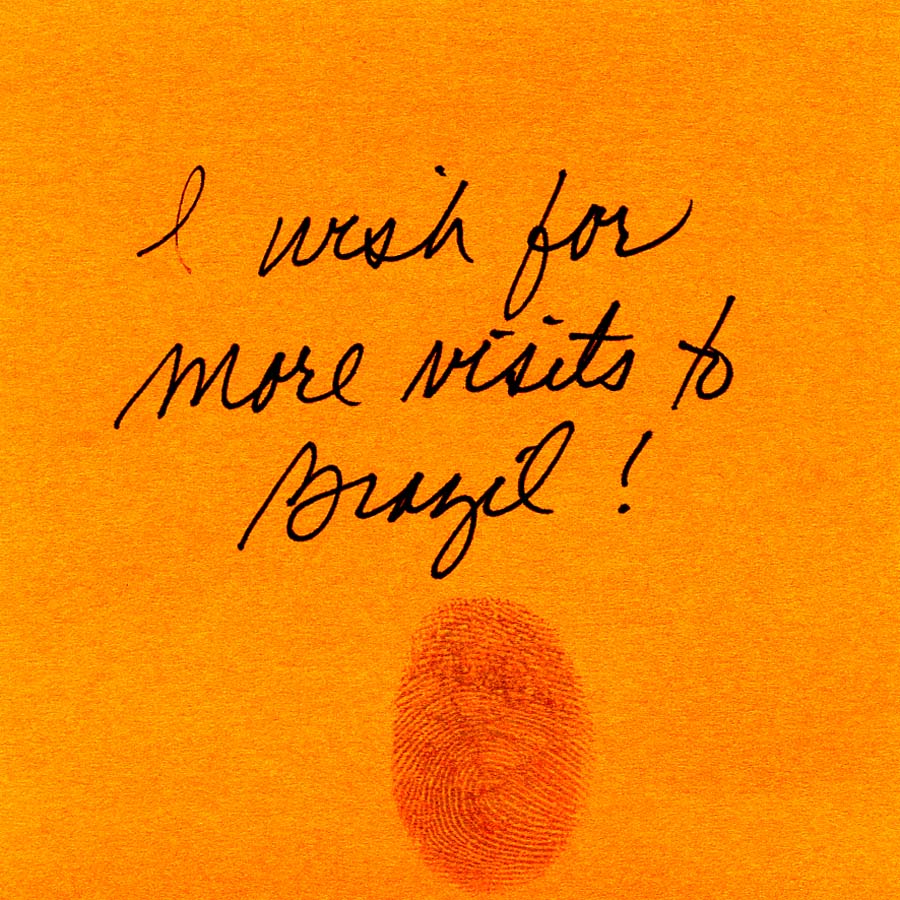 I wish for
more visits to
Brazil!